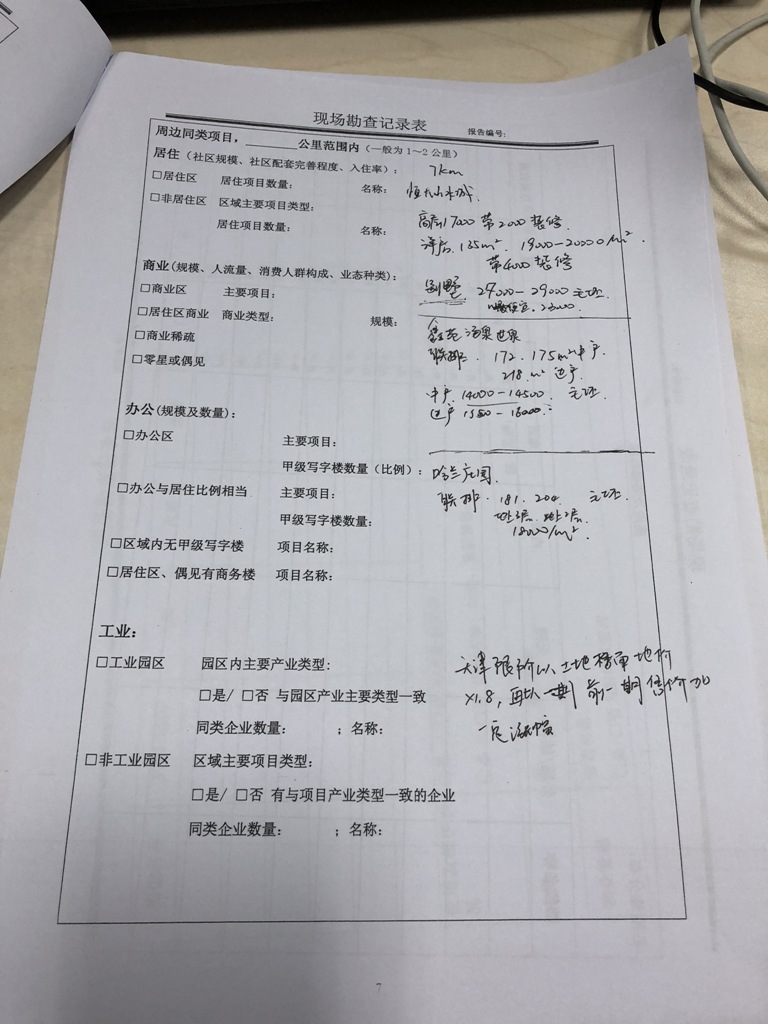 现场勘查记录表 报告编号:
周边同类项目，______公里范围内（一般为 1～2 公里）
居住（社区规模、社区配套完善程度、入住率）： 7km
□居住区 居住项目数量： 名称： 恒大山水城
□非居住区 区域主要项目类型：
高层17000 带2000 装修
居住项目数量： 名称：
洋房 135m² 19000-20000/m²
带4000 装修
商业(规模、人流量、消费人群构成、业态种类)：
别墅 27000-29000
□商业区 主要项目：
□居住区商业 商业类型： 规模：
□商业稀疏
汤泉世家
联排 172. 175m²中户
□零星或偶见
218 m² 边户
中户 14000-14500
边户 -16000
办公(规模及数量)：
□办公区 主要项目：
甲级写字楼数量（比例）：
庄园
□办公与居住比例相当 主要项目：
联排 181. 204
甲级写字楼数量：
18000/m²
□区域内无甲级写字楼 项目名称：
□居住区、偶见有商务楼 项目名称：
工业：
□工业园区 园区内主要产业类型:
天津限价以土地楼面地价
□是/ □否 与园区产业主要类型一致
×1.8，再以 前一期售价加
同类企业数量： ；名称：
一定涨幅
□非工业园区 区域主要项目类型：
□是/ □否 有与项目产业类型一致的企业
同类企业数量： ；名称：
7